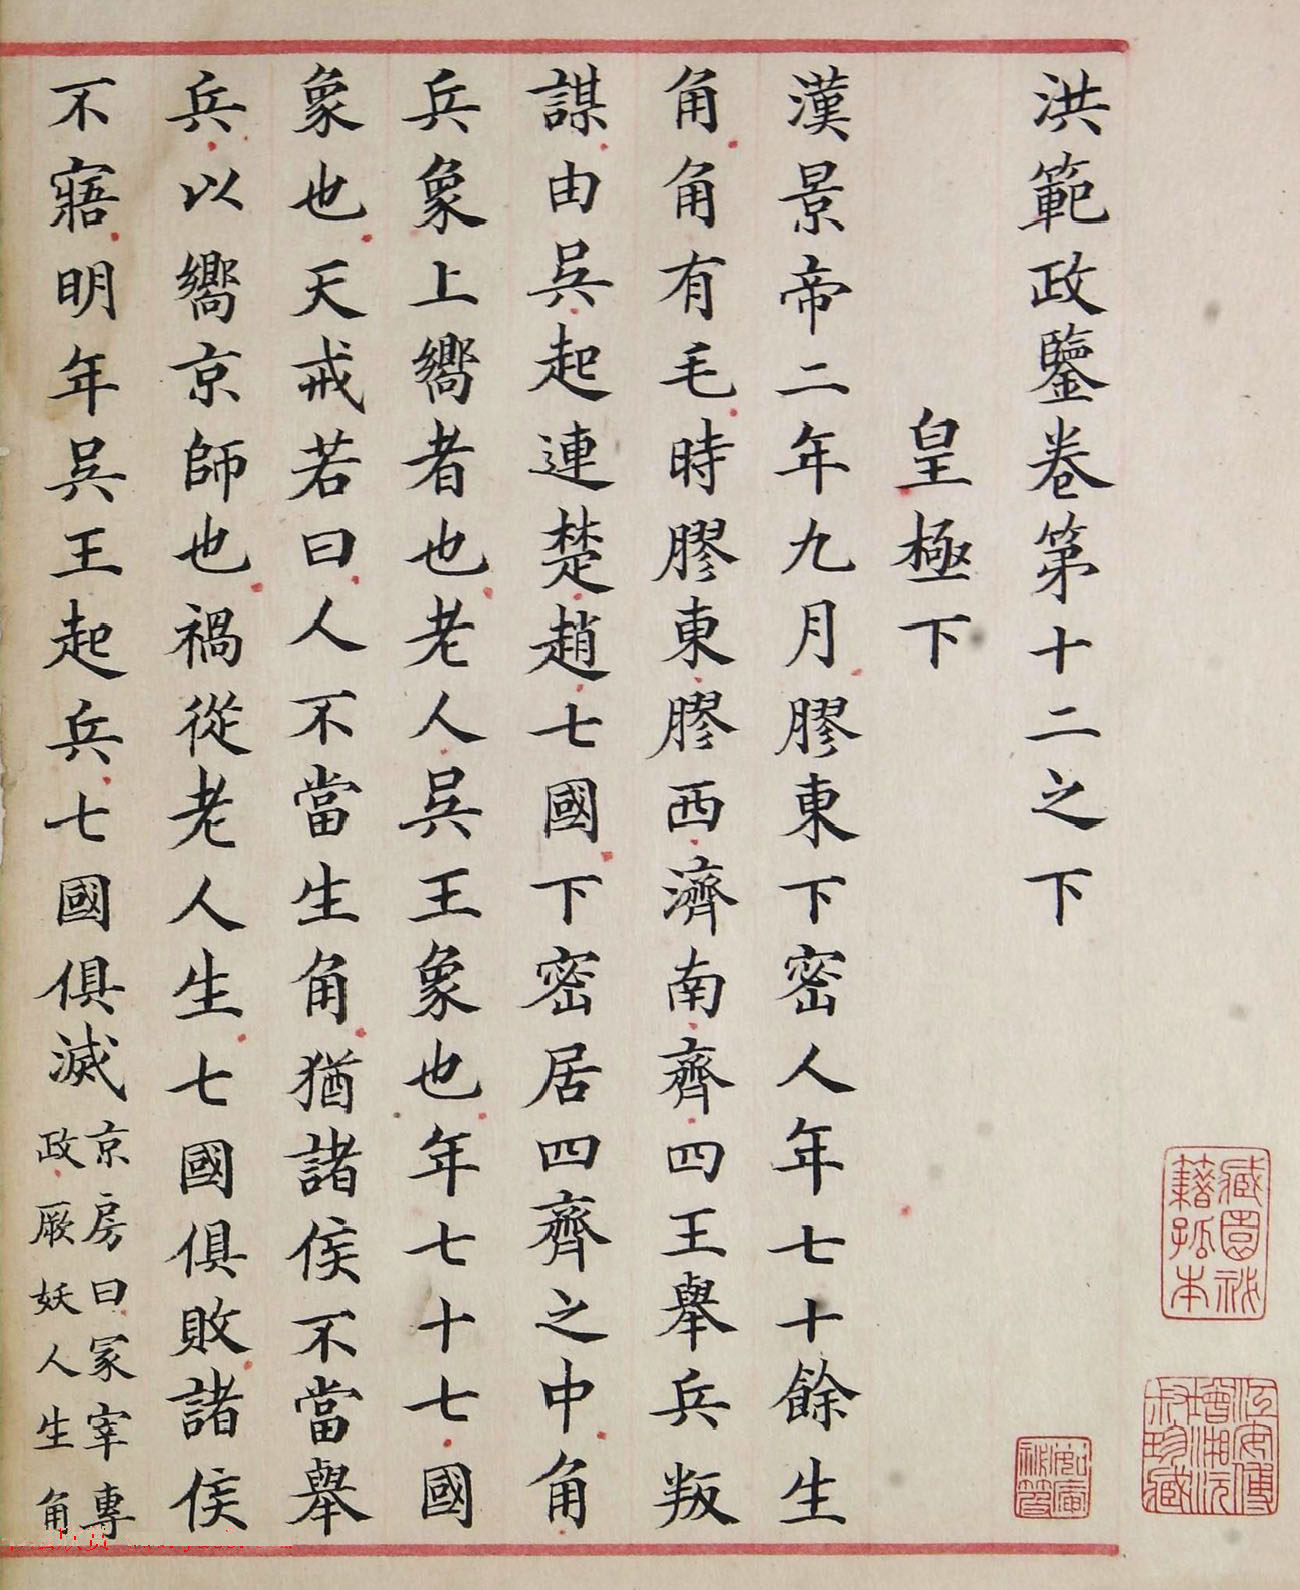 洪範政鑒卷第十二之下
皇極下
漢景帝二年九月膠東下密人年七十餘生
角角有毛時膠東膠西濟南齊四王舉兵叛
謀由吳起連楚趙七國下密居四齊之中角
兵象上嚮者也老人吳王象也年七十七國
象也天戒若曰人不當生角猶諸侯不當舉
兵以嚮京師也禍從老人生七國俱敗諸侯
不寤明年吳王起兵七國俱滅
京房曰冢宰專
政厥妖人生角
藏園秘
籍孤本
江安傅
增湘沅
叔珍藏